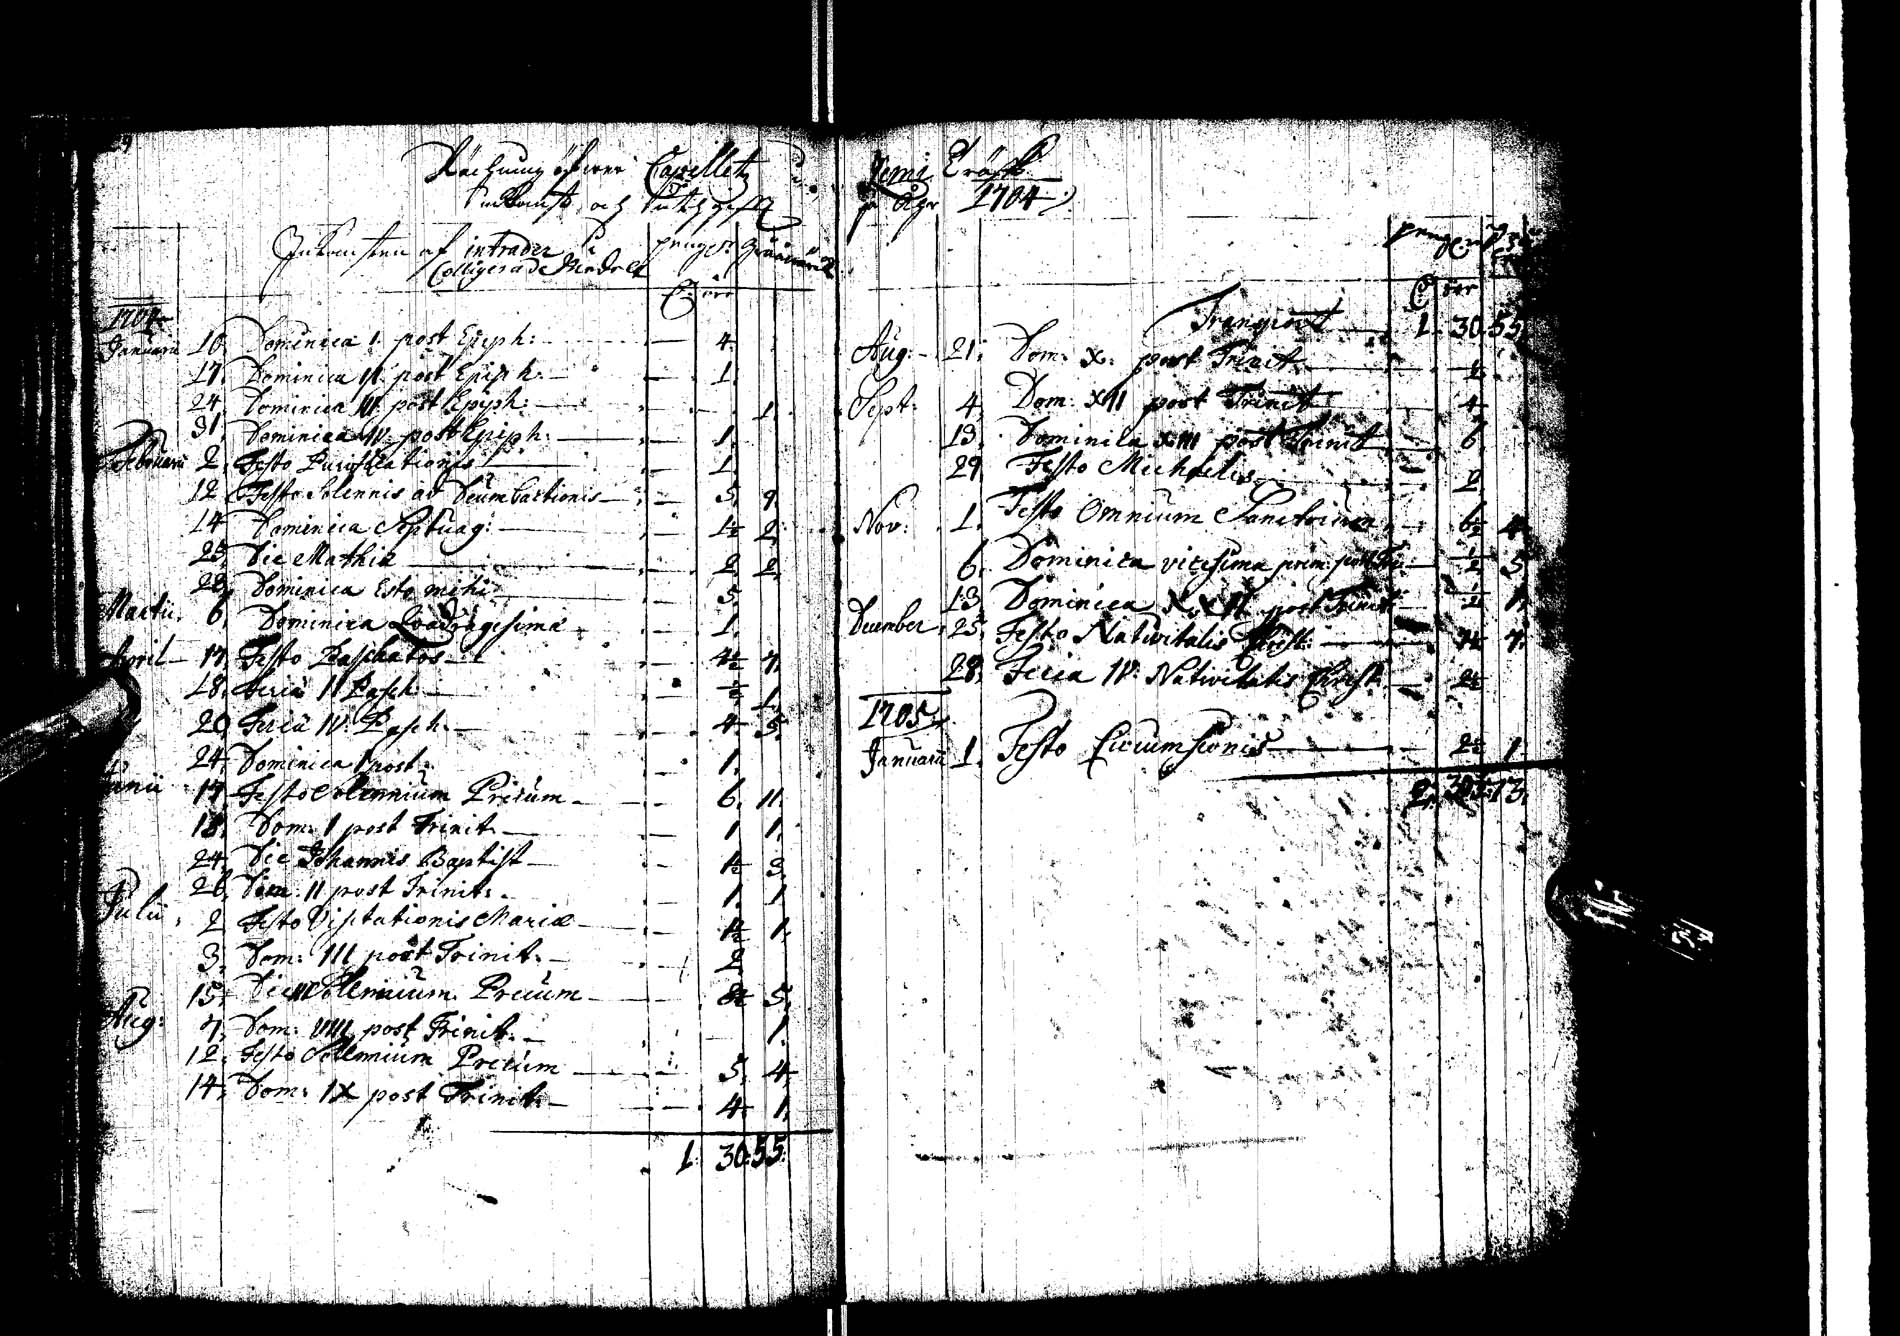 Rächning öfwer Capelletz
och
Inkomsten af intrader penger
Colligerade Medel
öre
1704
Januarii 10. Dominica I. post Epiph: 4.
17. Dominica II. post Epiph. 1.
24. Dominica III post Epyph: 1.
31. Dominica IV. post Epiph. 1.
Februarii 2. Festo Purificationis 1.
12 Festo Solennis ac 5. 9.
14 Dominica Septuag: 1½ 2.
25. Die Mathiæ 2. 2.
28. Dominica Esto mihi 5.
Martii. 6. Dominica Quadragesima 1.
April 17. Festo Paschatos 4½ 7.
18. Feria II Pasch. ½ 1.
20 Feria IV. Pasch. 4 5.
24. Dominica I post. 1.
Junii 17. Festo Solennium Precum 6. 11.
18. Dom: I post Trinit. 1 1.
24. Die Johannis Baptist 1½ 3.
26. Dom. II post Trinit. 1. 1
Julii. 2 Festo Visitationis Mariæ 1½ 1.
3. Dom: III post Trinit. 2.
15. Die Solennium Precum 5.
Aug: 7. Dom: post Trinit. 1.
12. Festo Solennium Precum 5. 4.
14. Dom: IX post Trinit. 4. 1.
1. 30. 55.
Kemi Träsk
1704
öre
Transport 1. 30. 55.
Aug: 21. Dom: X. post Trinit ½
Sept: 4. Dom: XII post Trinit 4.
13. Dominica XIII post Trinit 6
29. Festo Michaelis 2.
Nov: 1. Festo Omnium Sanctorum 6½ 4.
6. Dominica vicesima prim: post Tri: ½ 5
13. Dominica XXII post Trinit ½ 1.
December. 25. Festo Nativitatis Christ: 7.
28. Feria IV. Nativitatis Christ 2½
1705.
Januarii 1. Festo Circumsionis 2½ 1
2. 30½. 73.